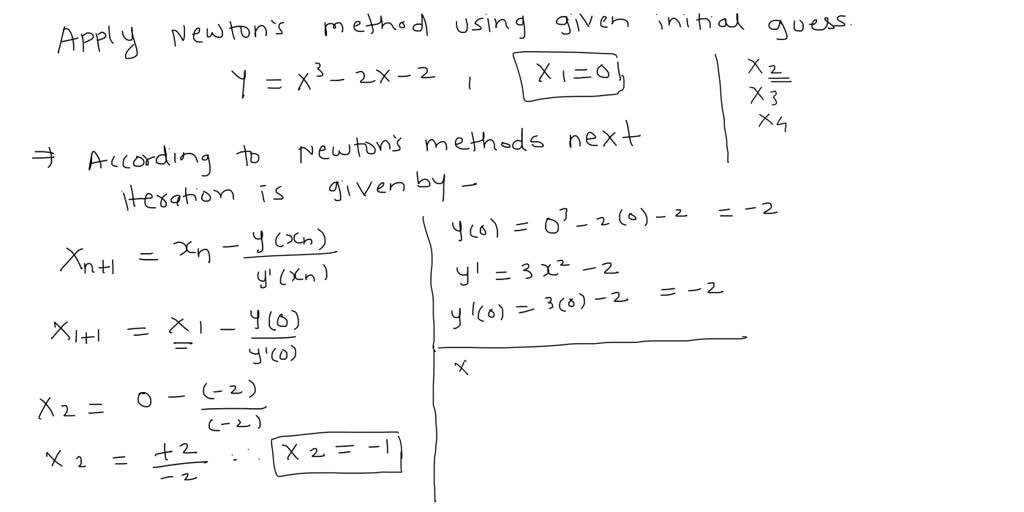 Apply Newton's method using given initial guess.
Y = x³ - 2x - 2 , x₁ = 0
x₂
x₃
x₄
⇒ According to Newton's methods next
iteration is given by -
xₙ₊₁ = xₙ - y(xₙ)/y'(xₙ)
x₁₊₁ = x₁ - y(0)/y'(0)
x₂ = 0 - (-2)/(-2)
x₂ = +2/-2 ∴ x₂ = -1
y(0) = 0³ - 2(0) - 2 = -2
y' = 3x² - 2
y'(0) = 3(0) - 2 = -2
x